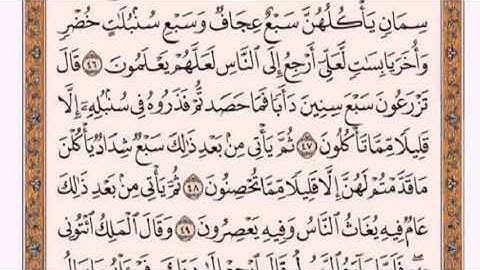 سِمَانٍ يَأْكُلُهُنَّ سَبْعٌ عِجَافٌ وَسَبْعِ سُنۢبُلَٰتٍ خُضْرٍ
وَأُخَرَ يَابِسَٰتٍ لَّعَلِّىٓ أَرْجِعُ إِلَى ٱلنَّاسِ لَعَلَّهُمْ يَعْلَمُونَ ٤٦ قَالَ
تَزْرَعُونَ سَبْعَ سِنِينَ دَأَبًا فَمَا حَصَدتُّمْ فَذَرُوهُ فِى سُنۢبُلِهِۦٓ إِلَّا
قَلِيلًا مِّمَّا تَأْكُلُونَ ٤٧ ثُمَّ يَأْتِى مِنۢ بَعْدِ ذَٰلِكَ سَبْعٌ شِدَادٌ يَأْكُلْنَ
مَا قَدَّمْتُمْ لَهُنَّ إِلَّا قَلِيلًا مِّمَّا تُحْصِنُونَ ٤٨ ثُمَّ يَأْتِى مِنۢ بَعْدِ ذَٰلِكَ
عَامٌ فِيهِ يُغَاثُ ٱلنَّاسُ وَفِيهِ يَعْصِرُونَ ٤٩ وَقَالَ ٱلْمَلِكُ ٱئْتُونِى